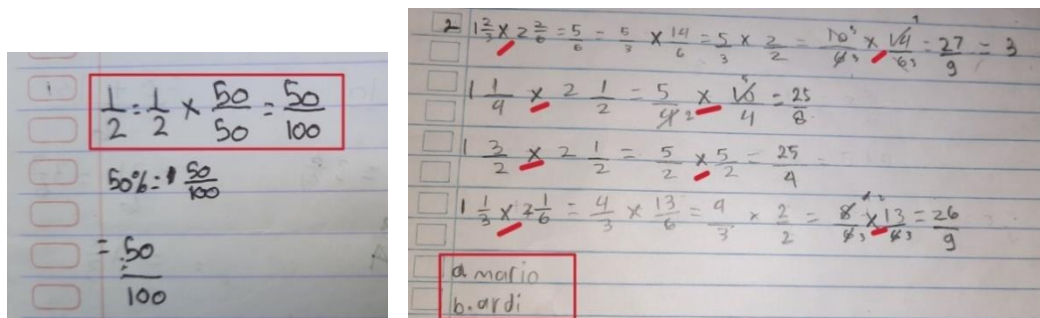 1
1/2 = 1/2 × 50/50 = 50/100
50% = 50/100
= 50/100
2 1 2/3 × 2 2/6 = 5/6 = 5/3 × 14/6 = 5/3 × 2/2 = 10/6 × 14/6 = 27/9 = 3
1 1/4 × 2 1/2 = 5/4 × 10/4 = 25/8
1 3/2 × 2 1/2 = 5/2 × 5/2 = 25/4
1 1/3 × 2 1/6 = 4/3 × 13/6 = 4/3 × 2/2 = 8/6 × 13/6 = 26/9
a. mario
b. ardi